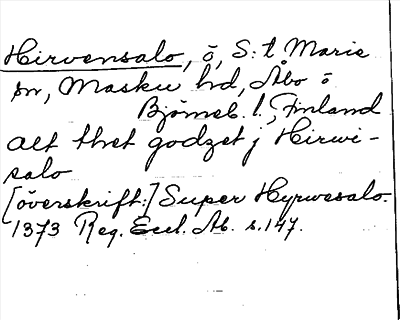 Hirvensalo, ö, S:t Marie
sn, Masku hd, Åbo o
Björneb. l., Finland
alt thet godzet j Hirwi-
salo
[överskrift:] Super Hyrwesalo.
1373 Reg. Eccl. Ab. s. 147.